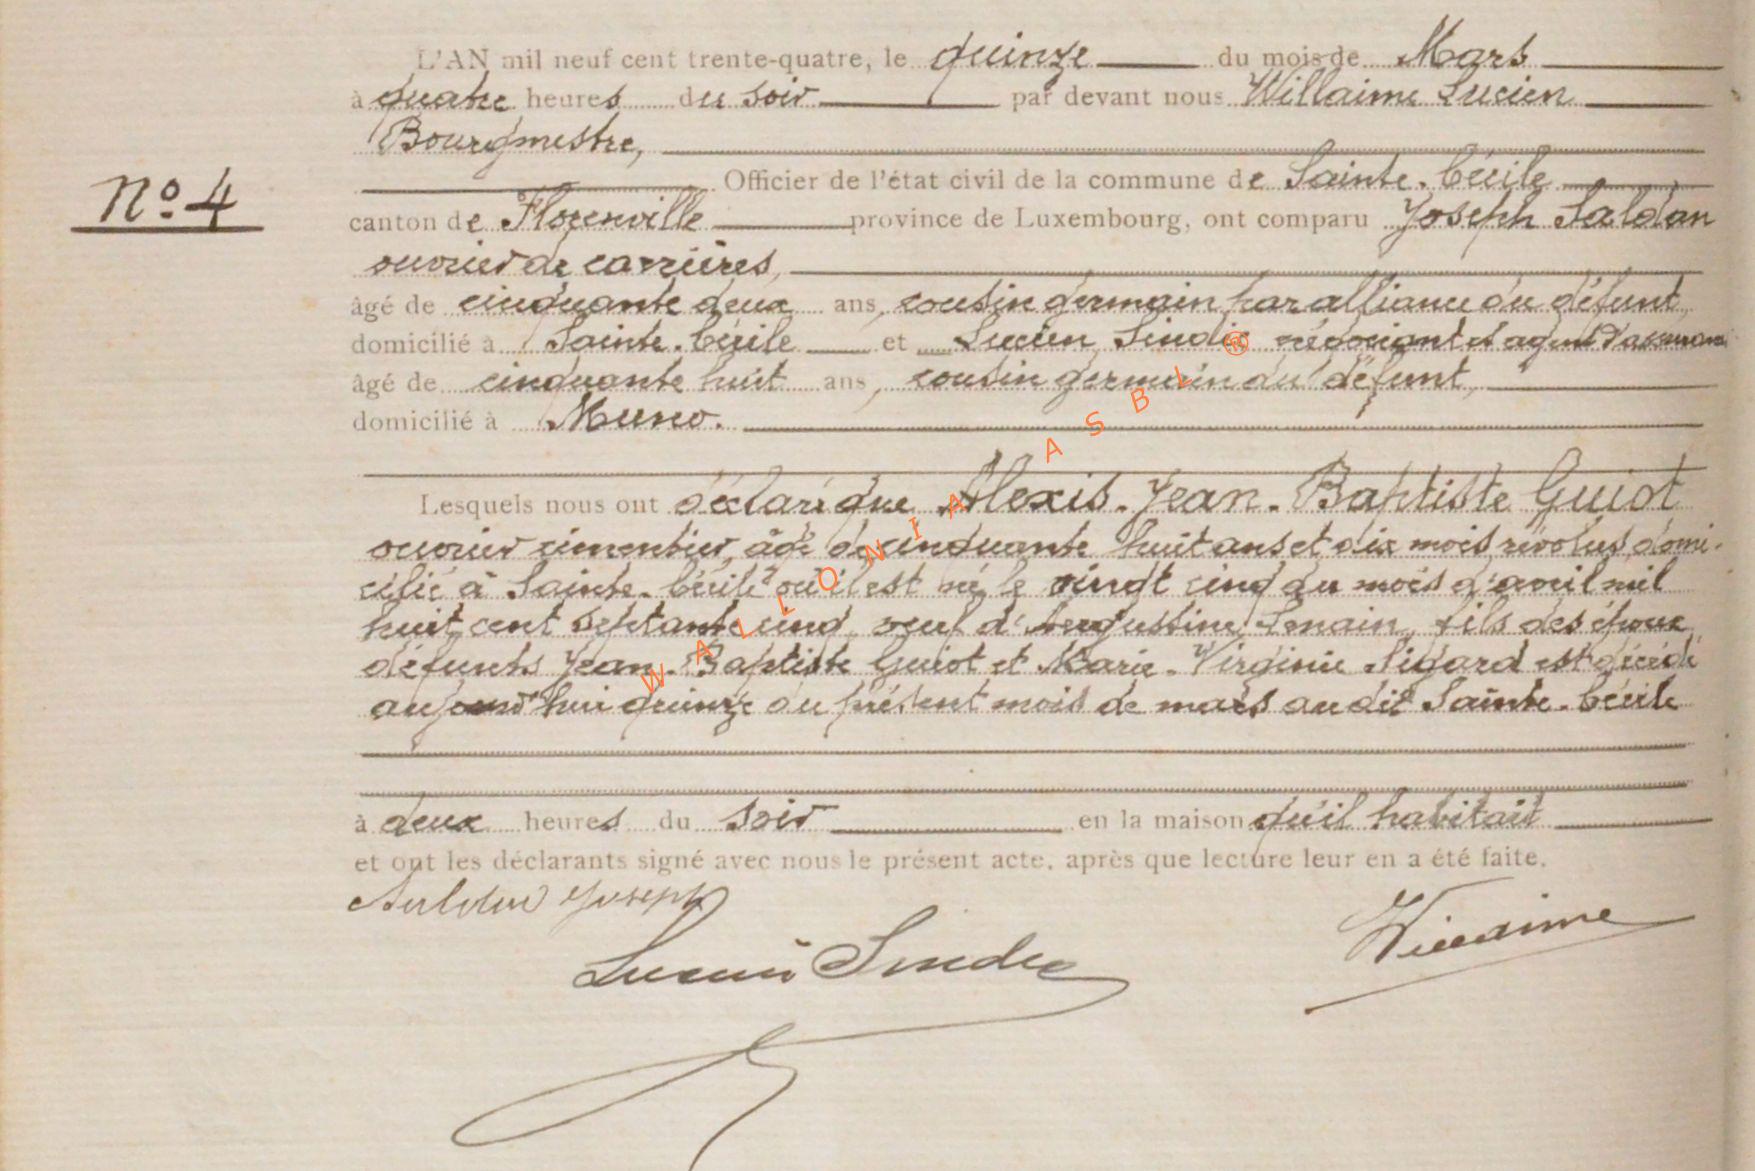 L'AN mil neuf cent trente-quatre, le quinze du mois de Mars
à quatre heures du soir par devant nous Willaime Lucien
Bourgmestre,
Officier de l'état civil de la commune de Sainte-Cécile
N° 4
canton de Florenville province de Luxembourg, ont comparu Joseph Saldan
ouvrier de carrières,
âgé de cinquante deux ans, cousin germain par alliance du défunt
domicilié à Sainte-Cécile et Lucien Sindic négociant et agent d'assurances
âgé de cinquante huit ans, cousin germain du défunt,
domicilié à Muno.
Lesquels nous ont déclaré que Alexis-Jean-Baptiste Guiot
ouvrier cimentier, âgé de cinquante huit ans et dix mois révolus, domi-
cilié à Sainte-Cécile où il est né le vingt cinq du mois d'avril mil
huit cent septante cinq, veuf d'Augustine Lemain, fils des époux
défunts Jean-Baptiste Guiot et Marie-Virginie Sigard est décédé
aujourd'hui quinze du présent mois de mars audit Sainte-Cécile
à deux heures du soir en la maison qu'il habitait
et ont les déclarants signé avec nous le présent acte, après que lecture leur en a été faite.
Joseph
Willaime
Lucien Sindic
WALLONIA ASBL ®